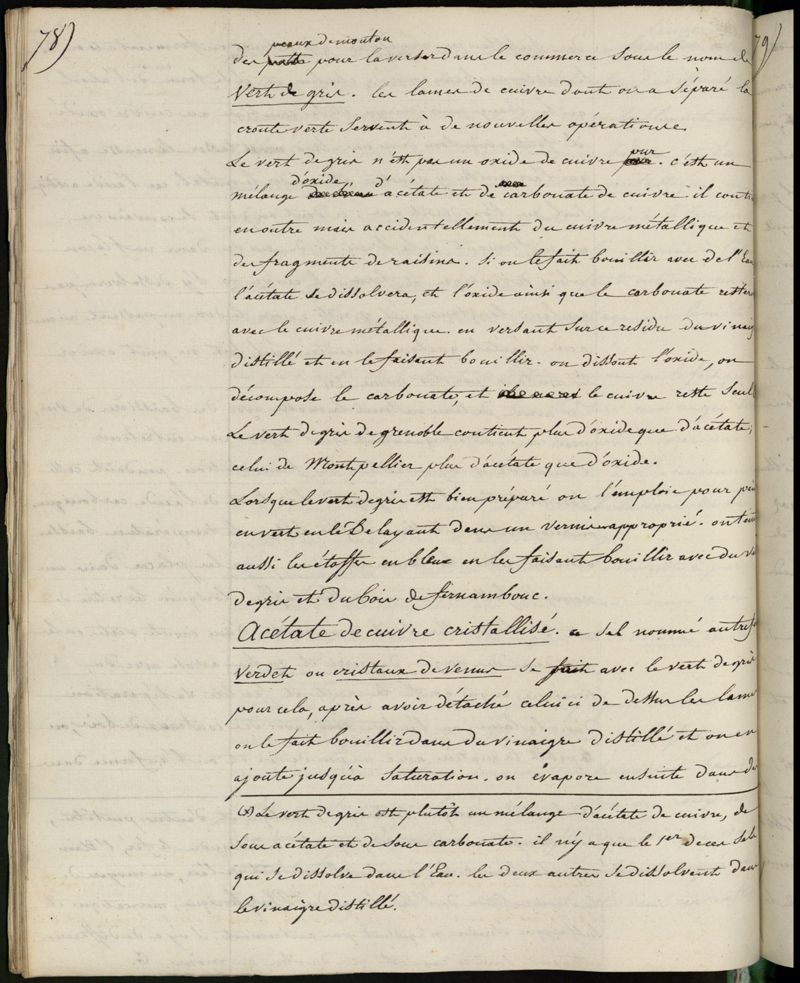 78)
79)
peaux de mouton
des pour la verser dans le commerce sous le nom de
Vert de gris. les lames de cuivre dont on a séparé la
croute verte servent à de nouvelles opérations.
Le vert de gris n'est pas un oxide de cuivre pur. c'est un
mélange d'oxide, d'acétate et de carbonate de cuivre il conti
en outre mais accidentellement du cuivre métallique et
des fragments de raisins. si on le fait bouillir avec de l'Eau
l'acétate se dissolvera, et l'oxide ainsi que le carbonate rester
avec le cuivre métallique. en versant sur ce residu du vinaig
distillé et en le faisant bouillir. on dissout l'oxide, on
décompose le carbonate, et le cuivre reste seul
Le vert de gris de grenoble contient plus d'oxide que d'acétate,
celui de Montpellier plus d'acétate que d'oxide.
Lorsque le vert de gris est bien préparé on l'emploie pour pei
en vert en le Delayant dans un vernis approprié. on teint
aussi les étoffes en bleu en les faisant bouillir avec du v
de gris et du bois de fernambouc.
Acétate de cuivre cristallisé. ce sel nommé autref
Verdet ou cristaux de venus se fait avec le vert de gris
pour cela, après avoir détaché celui ci de dessus les lames
on le fait bouillir dans du vinaigre distillé et on en
ajoute jusqu'à saturation. on évapore ensuite dans de
Le vert de gris est plutôt un mélange d'acétate de cuivre, de
sous acétate et de sous carbonate. il n'y a que le 1er de ces sels
qui se dissolve dans l'Eau. les deux autres se dissolvent dans
le vinaigre distillé.